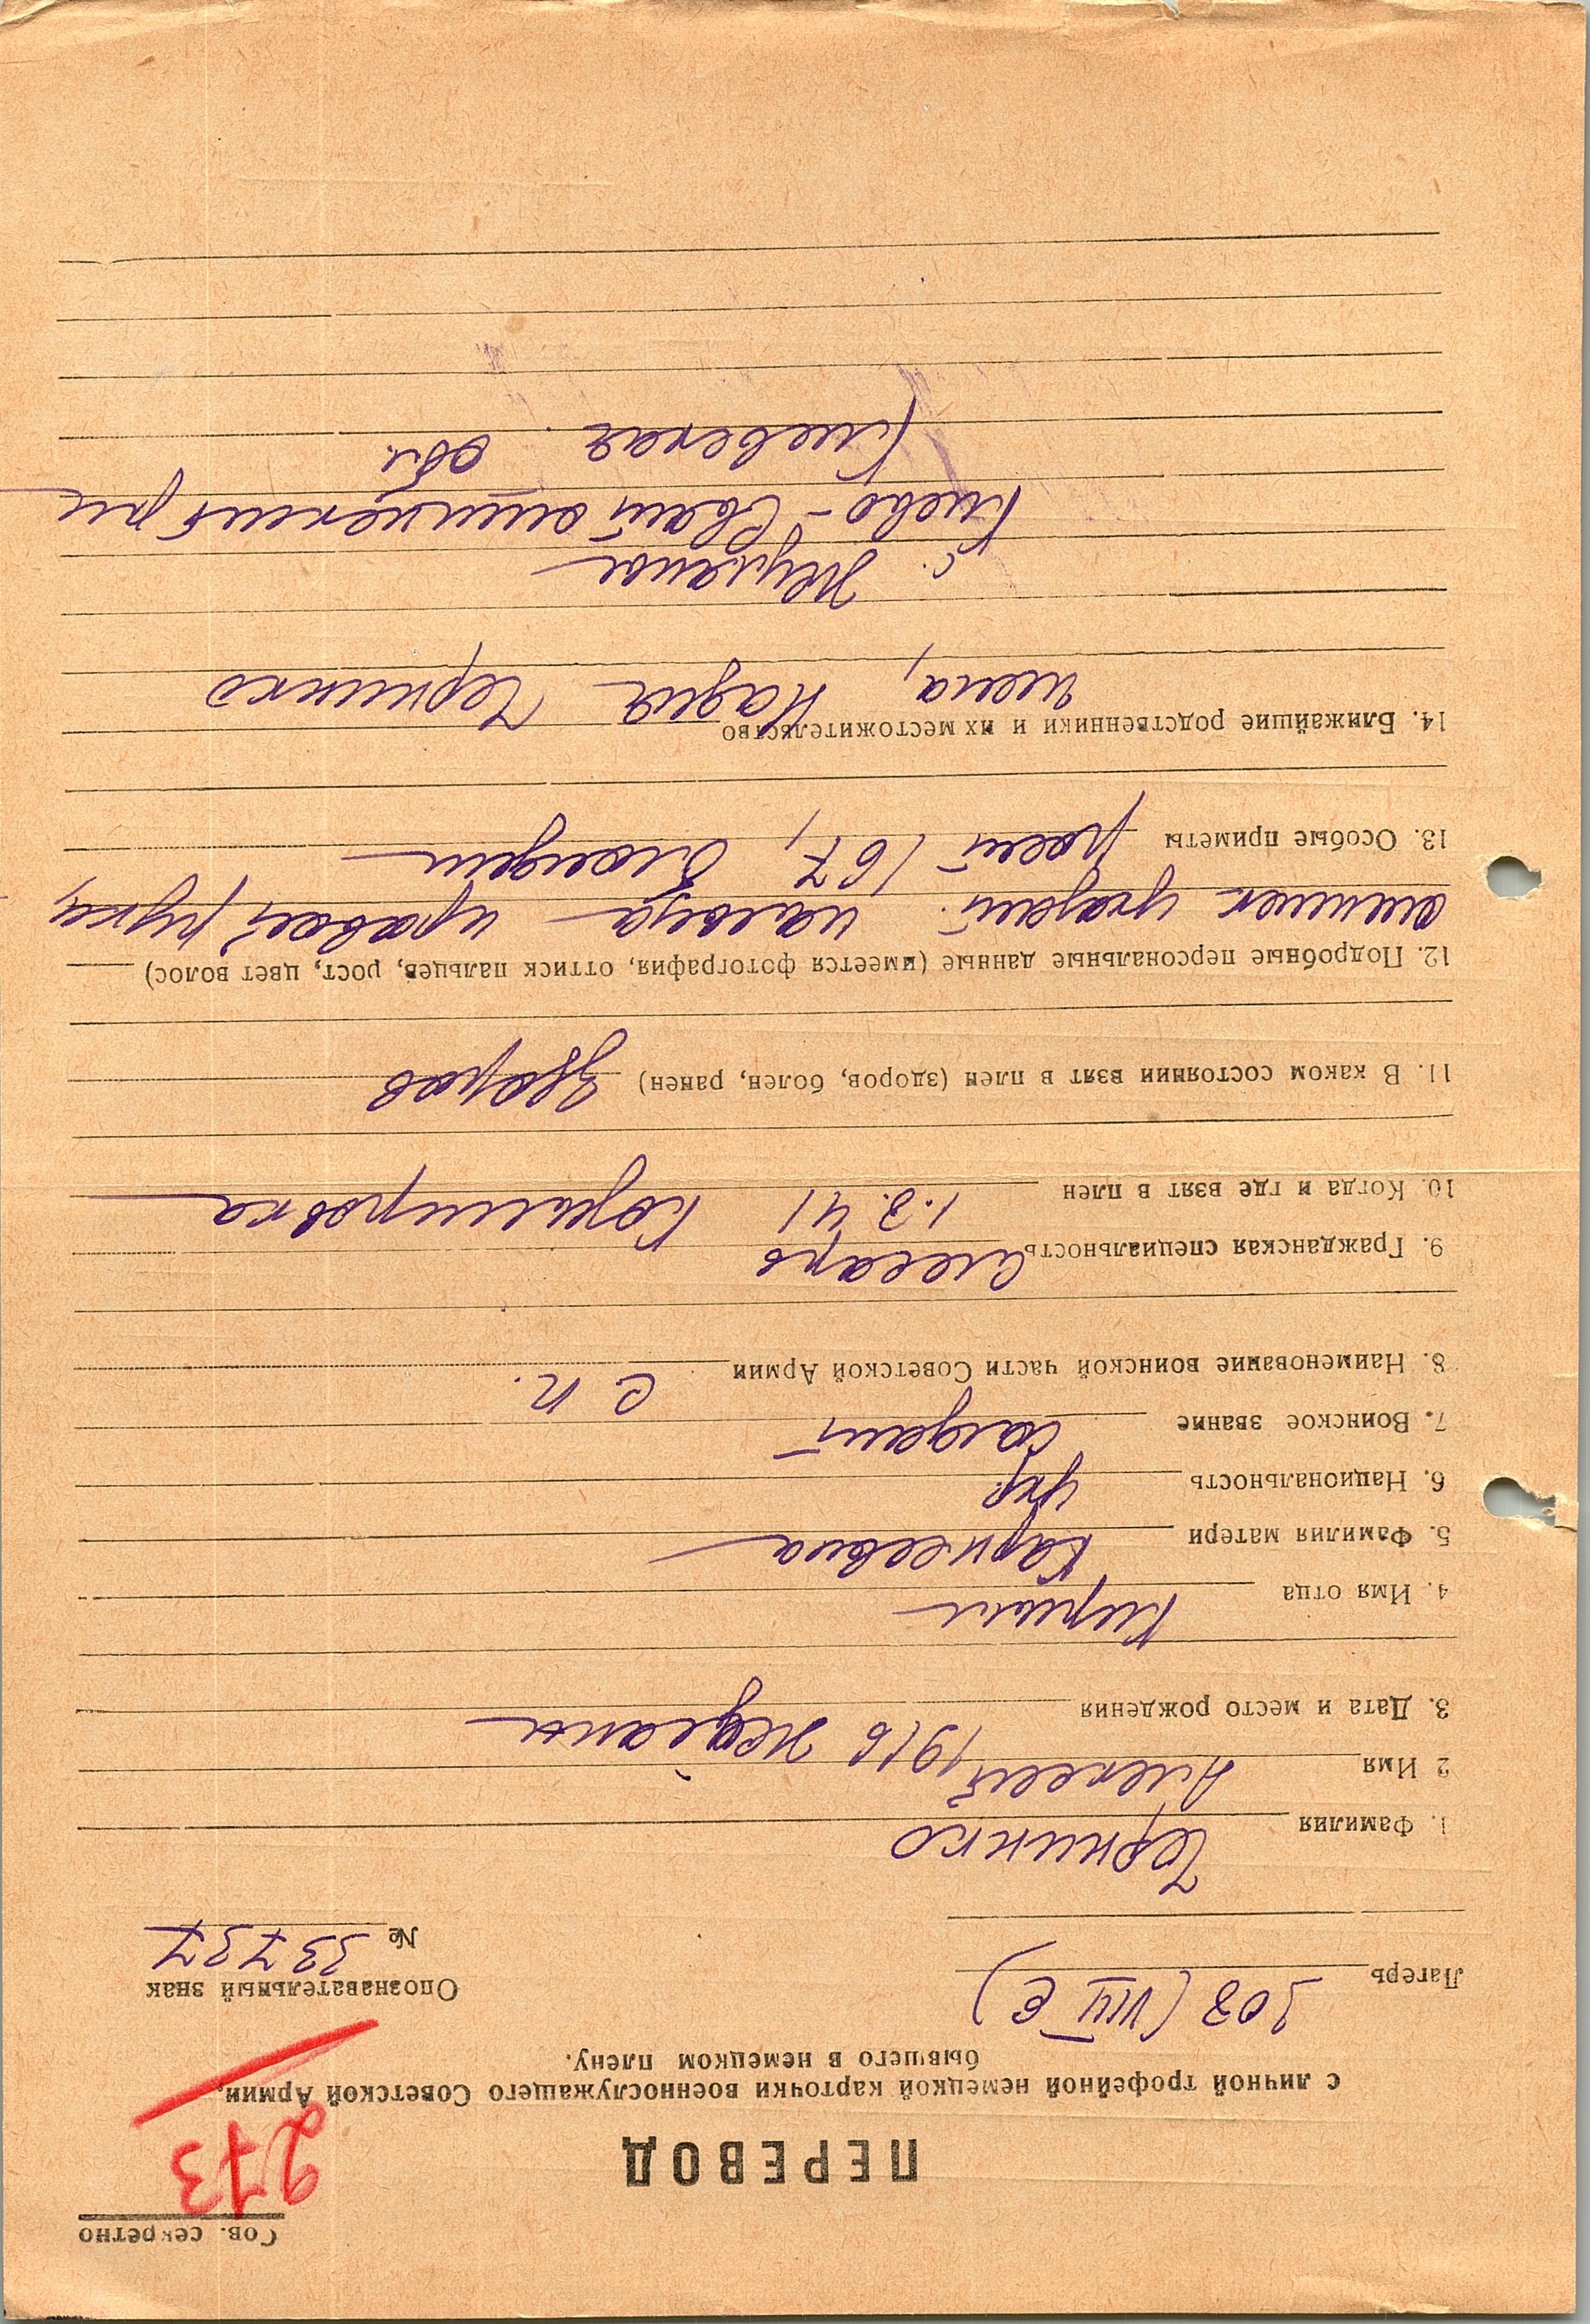 Сов. секретно
273
ПЕРЕВОД
с личной трофейной немецкой карточки военнослужащего Советской Армии,
бывшего в немецком плену.
Лагерь 308 (VIII E)
Опознавательный знак
№ 33737
1. Фамилия Черненко
2 Имя Алексей
3. Дата и место рождения 1916 Жуляны
4. Имя отца Кирилл
5. Фамилия матери Карнеевна
6. Национальность укр.
7. Воинское звание солдат
8. Наименование воинской части Советской Армии с. п.
9. Гражданская специальность слесарь
10. Когда и где взят в плен 1.8.41
11. В каком состоянии взят в плен (здоров, болен, ранен) здоров
12. Подробные персональные данные (имеется фотография, оттиск пальцев, рост, цвет волос)
оттиск указат. пальца правой руки,
13. Особые приметы рост 167, блондин
14. Ближайшие родственники и их местожительство
жена, Надия Черненко
с. Жуляны
Киево-Святошинский р-н
Киевская обл.